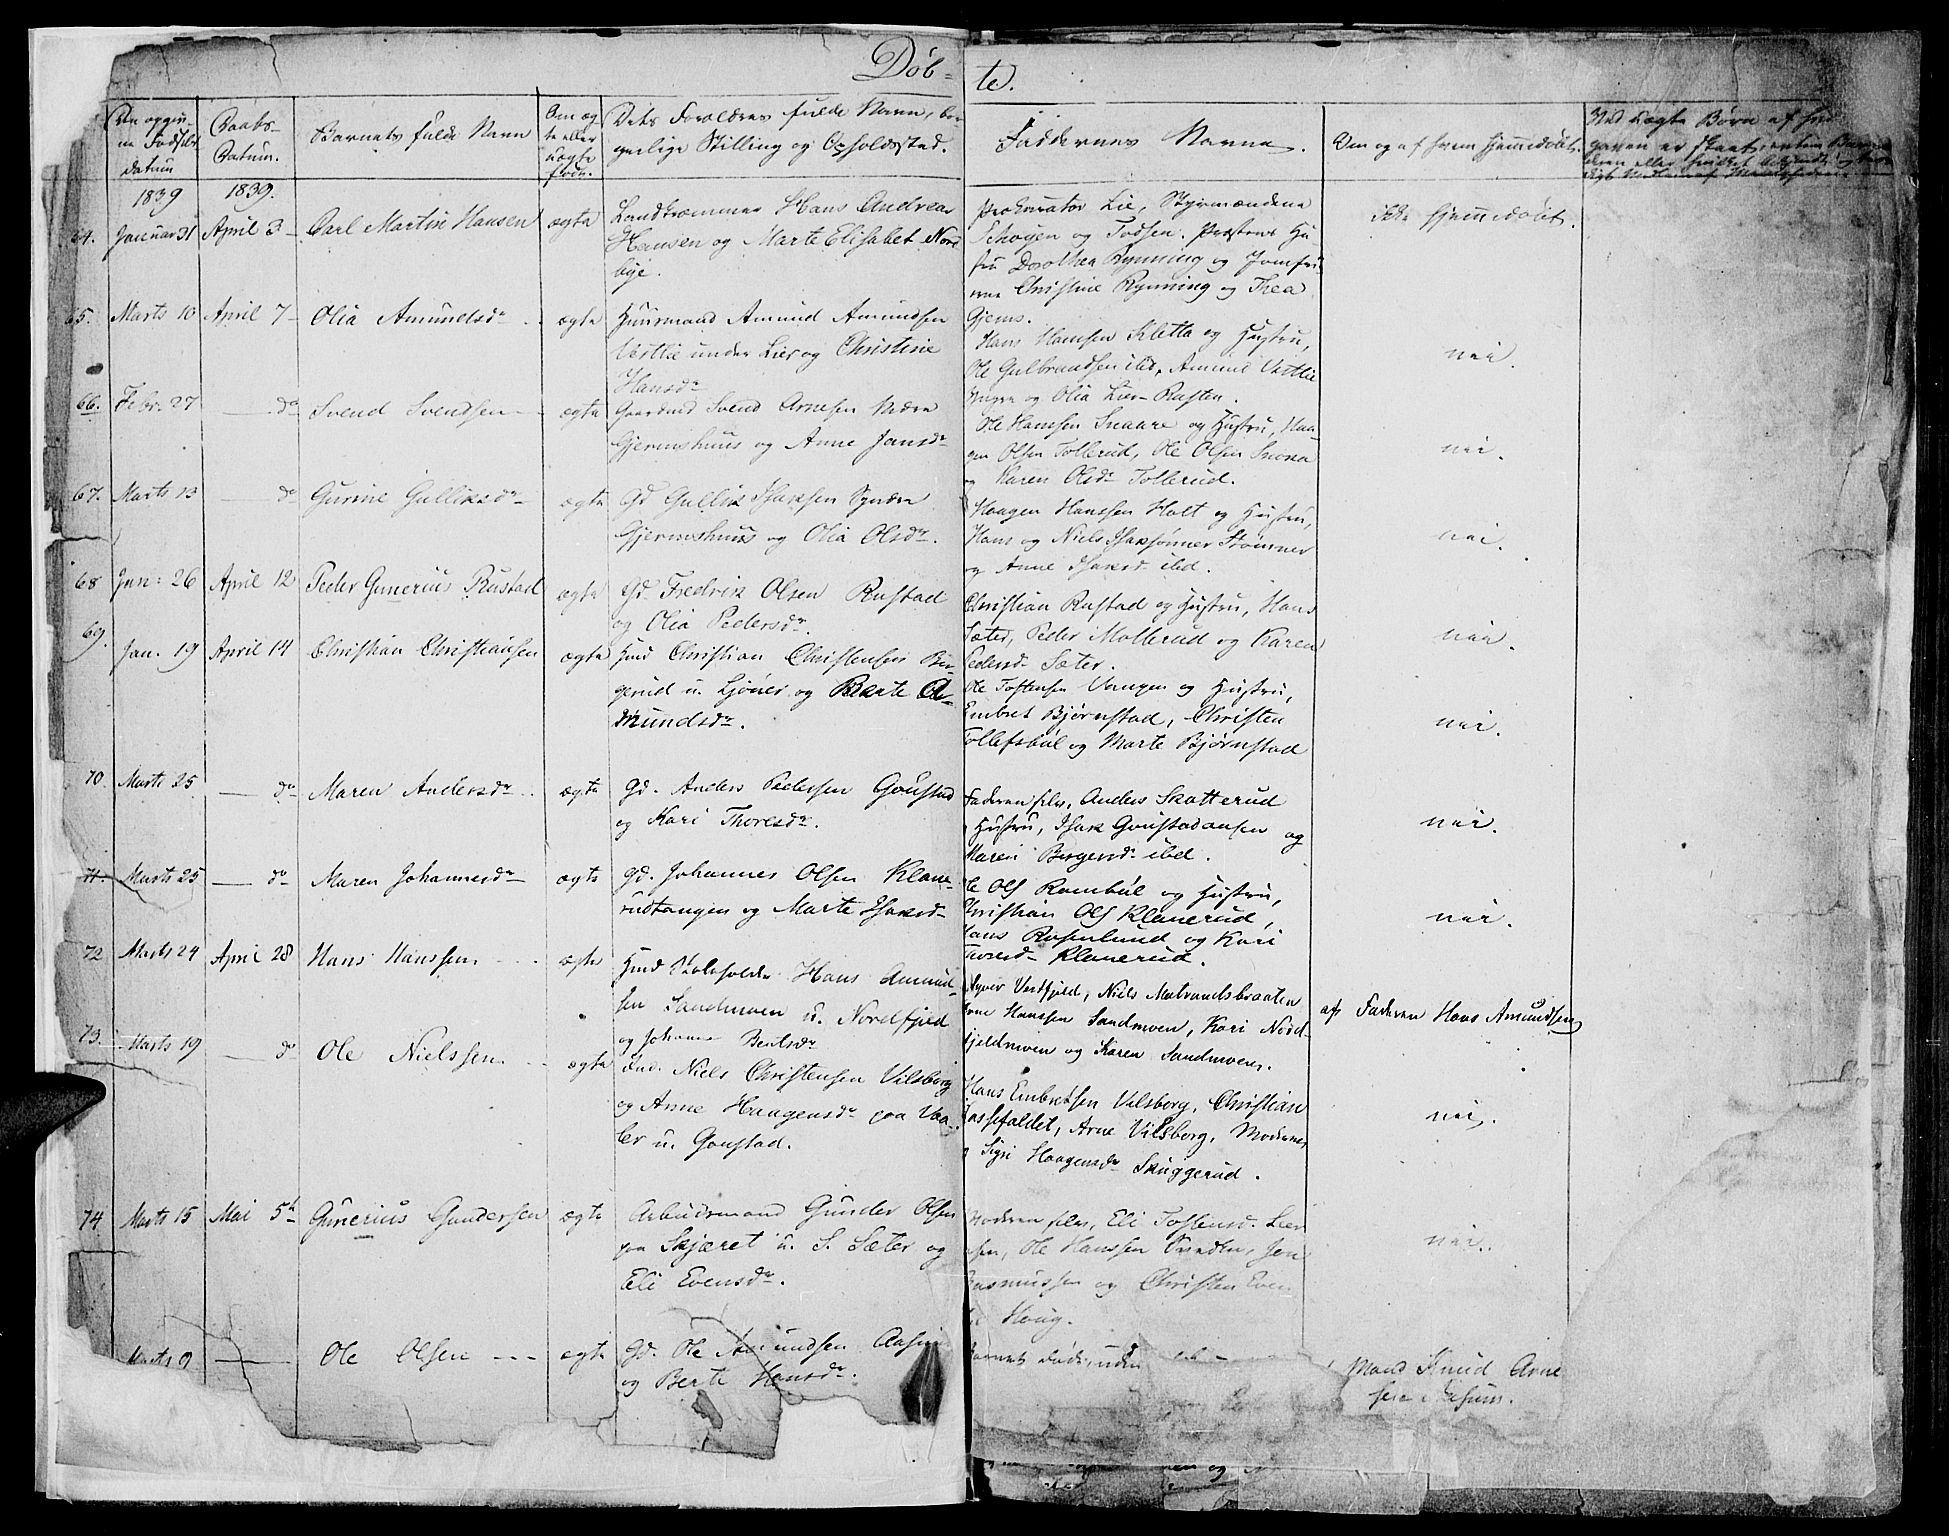 Døb-
te.
Den opgiv-
ne Fødsels
datum
Daabs-
Datum.
Barnets fulde Navn
Om æg-
te eller
uægte
født.
Dets Forældres fulde Navn, bor-
gerlige Stilling og Opholdssted.
Faddernes Navne.
Om og af hvem hjemmedøbt.
Ved uægte Børn
1839
1839.
64. Januar 31 April 3 Carl Martin Hansen ægte
Landkræmmer Hans Andreas
Hansen og Marte Elisabet Nord-
bye.
Prokurator Lie, Styrmændene
Schøyen og Todsen. Præstens Hu-
stru Dorothea Rynning og Jomfru-
erne Christine Rynning og Thea
Gjems.
ikke hjemmedøbt.
65. Marts 10 April 7 Olia Amundsdr ægte
Huusmand Amund Amundsen
Vestlie under Lier og Christine
Hansdr
Hans Hansen Kletta og Hustru,
Ole Gulbrandsen ibid, Amund Vestlie
og Olia Lier-
nei.
66. Febr. 27 do Svend Svendsen ægte
Gaardmd Svend Arnesen Nedre
Gjermshuus og Anne Jansdr
Ole Hansen Snaare og Hustru, Haa-
gen Olsen Tollerud, Ole Olsen
og Karen Olsdr Tollerud.
nei.
67. Marts 13 do Gurine Gulliksdr ægte
Gd Gullik Isaksen
Gjermshuus og Olia Olsdr.
Haagen Hanssen Holt og Hustru,
Hans og Niels Isaksønner Stømner
og Anne Isaksd ibid.
nei.
68 Jan: 26 April 12 Peder Gunerius Rustad ægte
Gd. Fredrik Olsen Rustad
og Olia Pedersdr.
Christian Rustad og Hustru, Hans
Sæter, Peder Mollerud og Karen
Pedersd Sæter.
nei.
69. Jan. 19 April 14 Christian Christiansen ægte
Hmd Christian Christensen Ber-
gerud u. Ljøner og Berte A-
mundsdr.
Ole Tostensen Vangen og Hustru,
Embret Bjørnstad, Christen
Tollefsbøl og Marte Bjørnstad
nei.
70. Marts 25 do Maren Andersdr ægte
Gd. Anders Pedersen Goustad
og Kari Thoresdr.
Faderen selv, Anders Skotterud
og Hustru, Isak Goustadausen og
Maren Bergersdr ibd.
nei.
71. Marts 25 do Maren Johannesdr ægte
Gd. Johannes Olsen Klane-
rudtangen og Marte Isaksd-
Ole Ols Rambøl og Hustru,
Christian Ols Klanerud,
Hans Rosenlund og Kari
Thoresd Klanerud.
nei.
72 Marts 24 April 28 Hans Hanssen ægte
Hmd Skoleholder Hans Amund-
sen Sandmoen u. Nordfjeld
og Johanne Bentsdr
Vestfjeld, Niels Matrandsbraaten
Arne Hanssen Sandmoen, Kari Nord-
fjeldmoen og Karen Sandmoen.
af Faderen Hans Amundsen
73. Marts 19 do Ole Nielssen ægte
Ind. Niels Christensen Vilsborg
og Anne Haagensdr paa Vaa-
ler u. Goustad.
Hans Embretsen Vilsborg, Christian
Arne Vilsborg, Moderen
og Sigri Haagensdr Skuggerud.
nei.
74 Marts 15 Mai 5te Gunerius Gundersen ægte
Arbeidsmand Gunder Olsen
paa Skjæret u. S. Sæter og
Eli Evensdr.
Moderen selv, Eli Tostensd. Lier
Ole Hanssen Jens
Rasmussen og Christen Even-
Houg.
nei.
Marts 9 Ole Olsen ægte
Gd. Ole Amundsen Aasum
og Berte Hansdr.
Barnet døde uden
Mand Knud Arne-
sen Aasum.